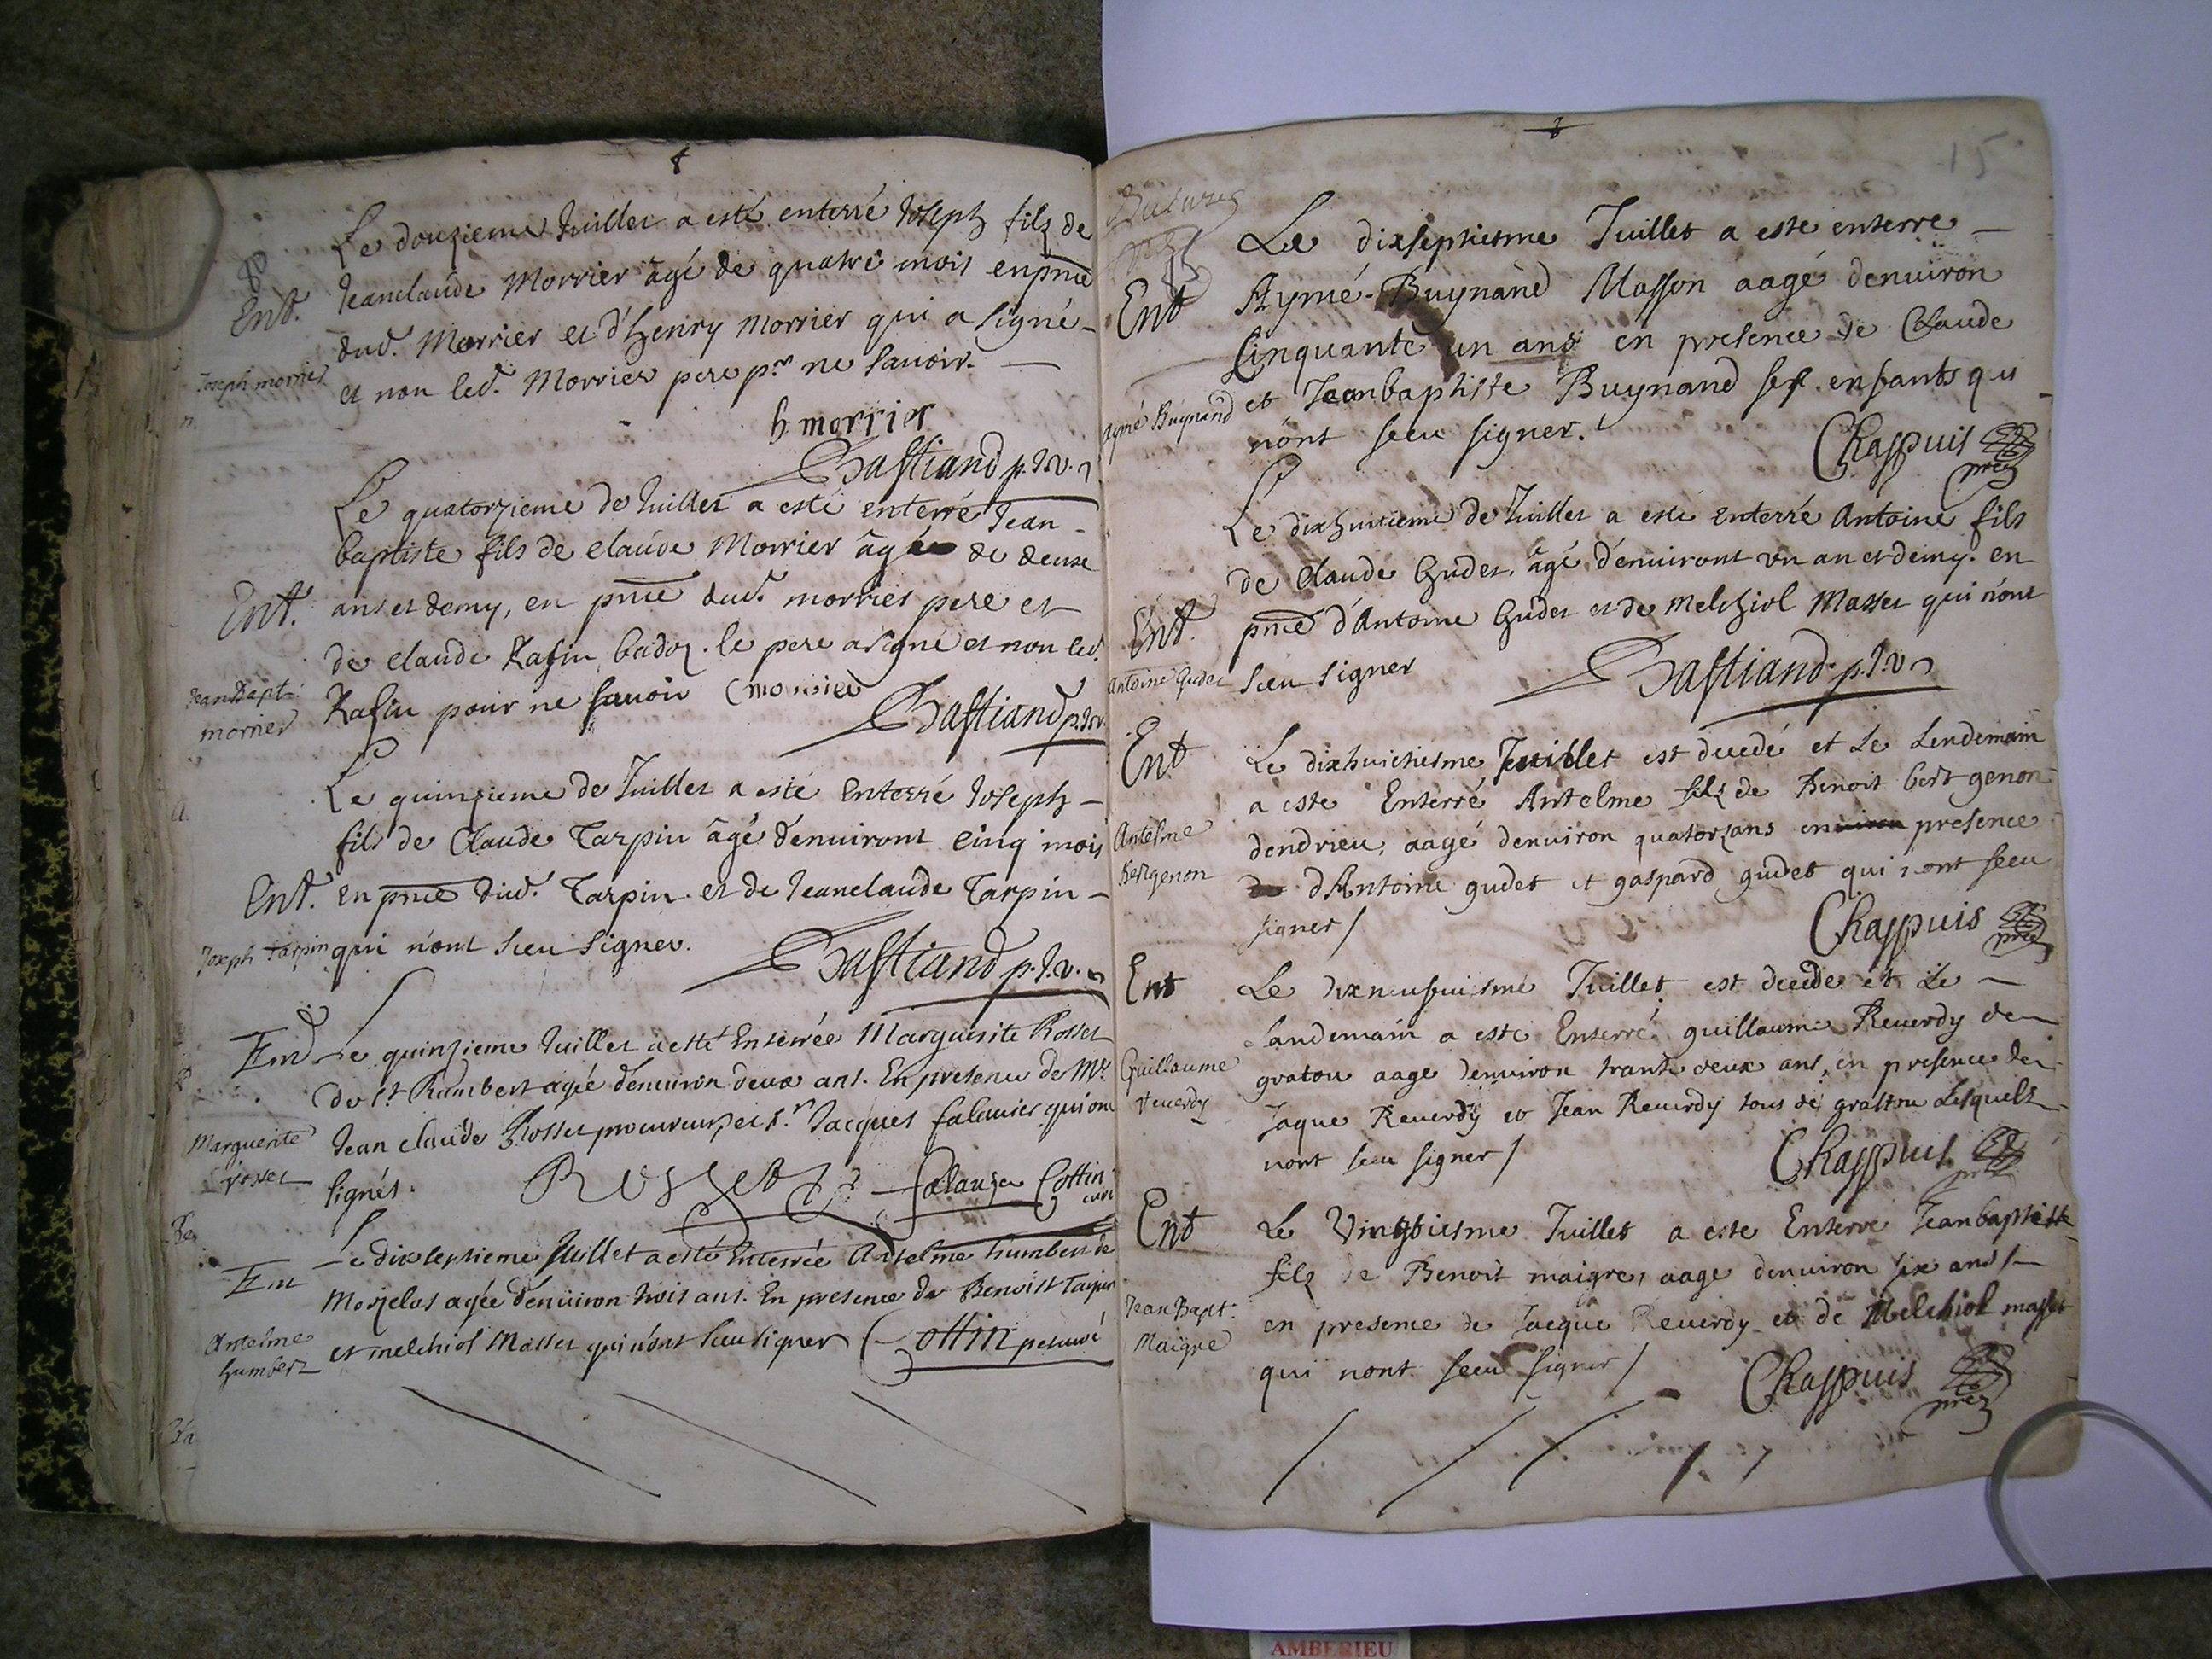 8
Le douzieme Juillet a esté enterré Joseph filz de
Ent. Jeanclaude Morrier âgé de quatre mois en pnce
dud. Morrier et d'henry morrier qui a signé
Joseph morrier
et non led. Morrier pere pr ne savoir.
h morrier
Bastiand p.s.v.
Le quatorzieme de Juillet a esté enterré Jean
baptiste fils de claude Morrier âgé de deux
Ent. ans et demy, en pnce dud. morrier pere et
de claude Rafin badoz. le pere a signé et non led.
Jean Bapt.
morrier
Rafin pour ne savoir C morrier
Bastiand p.s.v.
Le quinzieme de Juillet a esté enterré Joseph
fils de Claude Tarpin âgé d'enuiront cinq mois
Ent. en pnce dud. Tarpin et de Jeanclaude Tarpin
Joseph tarpin
qui n'ont sceu signer.
Bastiand p.s.v.
Ent Le quinzieme Juillet a esté Enterrée Marguerite Rosset
de st Rambert agée d'enuiron deux ans. En presence de Me
Marguerite
rosset
Jean claude Rosset procureur, et sr Jacques falauier qui ont
signés.
Rosset falauier Cottin curé
Ent Le dix septieme Juillet a esté Enterrée Antelme humbert de
Morjelas agée d'enuiron trois ans. En presence de Benoist Tarpin
Antelme
humbert
et melchiol Masset qui n'ont sceu signer Cottin p curé
15
Le dixseptiesme Juillet a esté enterre
Ent Aymé Buynand Masson aagé denuiron
Cinquante un ans en presence de Claude
Aymé Buynand
et Jeanbaptiste Buynand ses enfants qui
nont sceu signer.
Chappuis
pre
Le dixhuitieme de Juillet a esté enterré Antoine fils
de Claude Gudet, âgé d'enuiront vn an et demy. en
Ent. pnce d'Antoine Gudet et de Melchiol Masset qui n'ont
Antoine Gudet
sceu signer
Bastiand p.s.v.
Ent Le dixhuictiesme Juillet est decedé et Le Lendemain
a esté Enterré Antelme filz de Benoit bert genon
Antelme
bertgenon
dendrieu, aagé denuiron quatorzans en presence
dAntoine gudet et gaspard gudet qui nont sceu
signer /
Chappuis
pre
Ent Le dixneufuiesme Juillet est decede et Le
Landemain a esté Enterré guillaume Reuerdy de
Guillaume
reuerdy
gratou aage denuiron trante deux ans, en presence de
Jaque Reuerdy et Jean Reuerdy tous de Lesquels
nont sceu signer /
Chappuis
pre
Ent Le Vingtiesme Juillet a este Enterre Jeanbaptiste
filz de Benoit maigre, aage denuiron six ans /
Jean Bapt.
Maigre
en presence de Jacque Reuerdy et de Melchiol masset
qui nont sceu signer /
Chappuis
pre
AMBERIEU